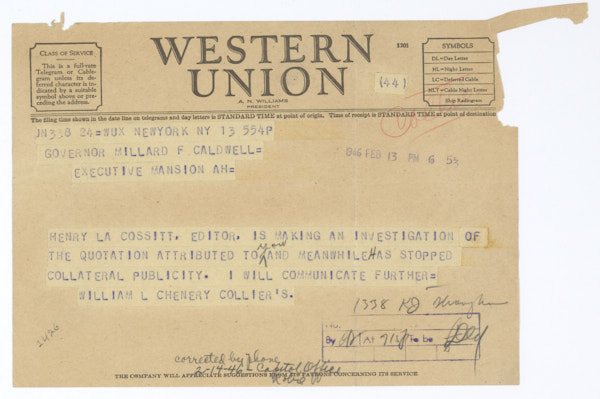 CLASS OF SERVICE
This is a full-rate
Telegram or Cable-
gram unless its de-
ferred character is in-
dicated by a suitable
symbol above or pre-
ceding the address.
WESTERN
UNION
A. N. WILLIAMS
PRESIDENT
1201
(44)
SYMBOLS
DL=Day Letter
NL=Night Letter
LC=Deferred Cable
NLT=Cable Night Letter
Ship Radiogram
The filing time shown in the date line on telegrams and day letters is STANDARD TIME at point of origin. Time of receipt is STANDARD TIME at point of destination
JN338 24=WUX NEWYORK NY 13 554P
GOVERNOR MILLARD F CALDWELL=
EXECUTIVE MANSION AH=
1946 FEB 13 PM 6 54
HENRY LA COSSITT, EDITOR, IS MAKING AN INVESTIGATION OF
THE QUOTATION ATTRIBUTED TO you AND MEANWHILE HAS STOPPED
COLLATERAL PUBLICITY. I WILL COMMUNICATE FURTHER=
WILLIAM L CHENERY COLLIER'S.
1338
By at To be
corrected by phone
2-14-46 - Capitol Office
THE COMPANY WILL APPRECIATE SUGGESTIONS FROM ITS PATRONS CONCERNING ITS SERVICE